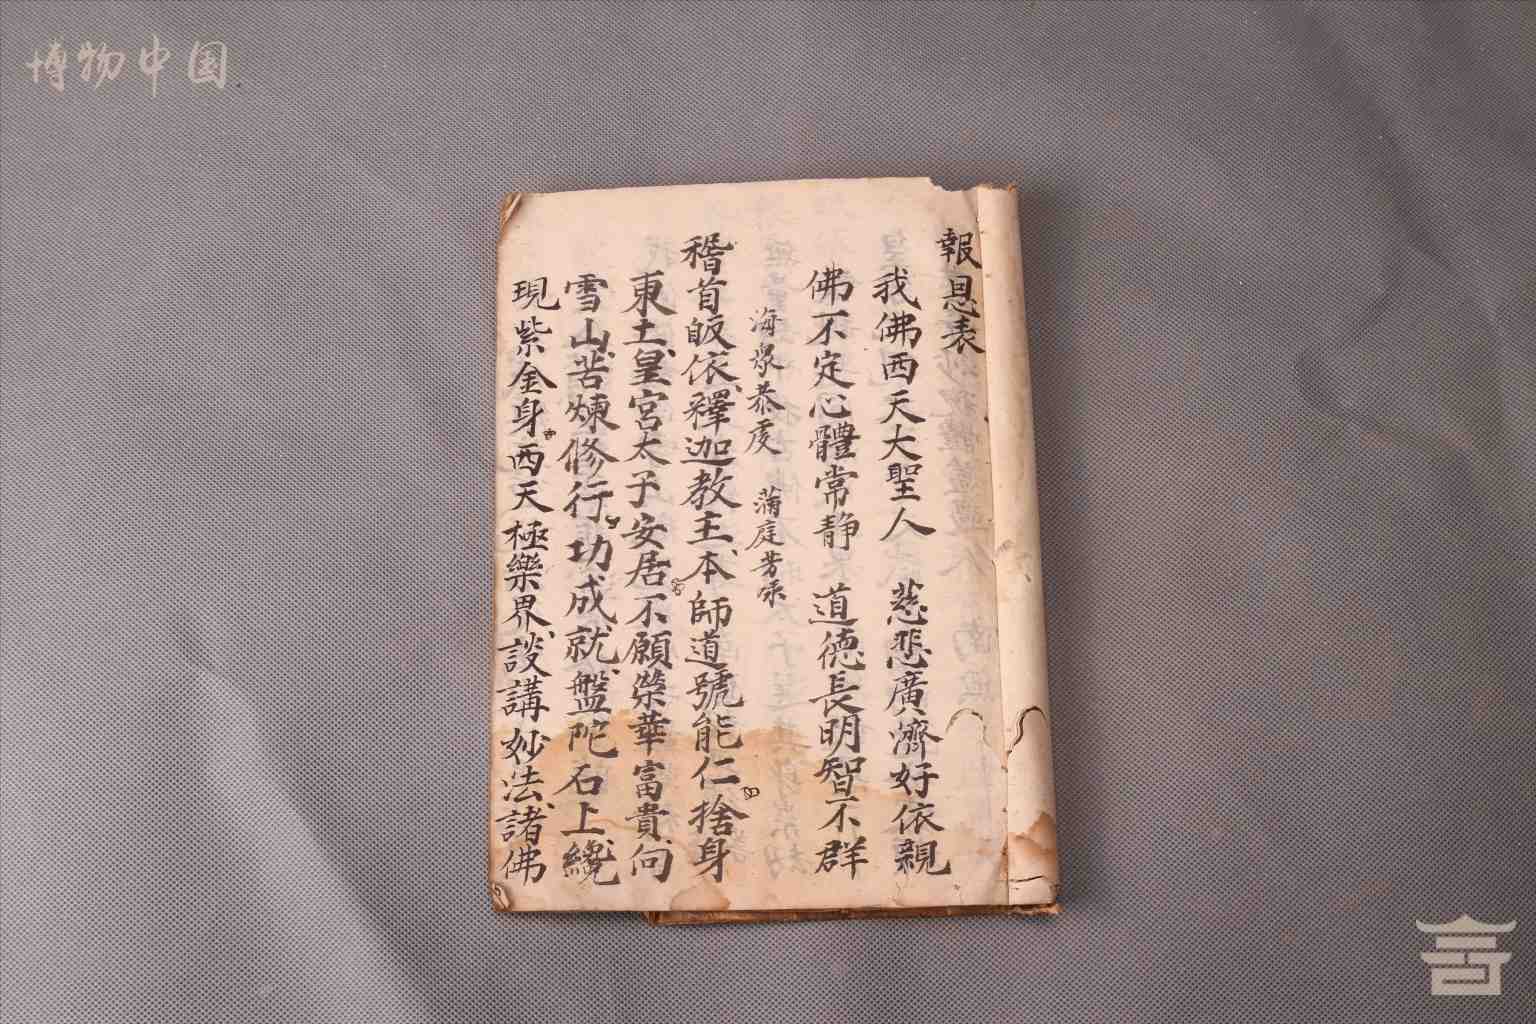 博物中国
報恩表
我佛西天大聖人 慈悲廣濟好依親
佛不定心體常静 道德長明智不群
海眾恭虔 蒲庭芳
稽首皈依釋迦教主本師道號能仁捨身
東土皇宮太子安居不願榮華富貴向
雪山苦煉修行功成就盤陀石上纔
現紫金身西天極樂界談講妙法諸佛